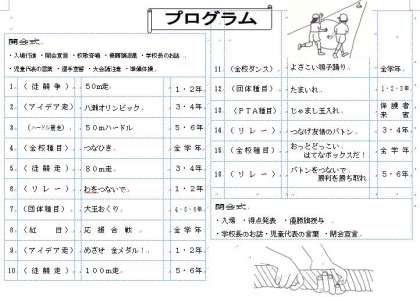 プログラム
開会式
・入場行進 ・開会宣言 ・校歌斉唱 ・優勝旗返還 ・学校長のお話
・児童代表の言葉 ・選手宣誓 ・大会諸注意 ・準備体操
1. 〈徒競争〉 50m走. 1・2年
2. 〈アイデア走〉 八瀬オリンピック. 3・4年
3. 〈ハードル競走〉 50mハードル 5・6年
4. 〈全校種目〉 つなひき. 全学年
5. 〈徒競走〉 80m走. 3・4年
6. 〈リレー〉 わをつないで. 1・2年
7. 〈団体種目〉 大玉おくり. 4・5・6年
8. 〈紅 目〉 応援合戦. 全学年
9. 〈アイデア走〉 めざせ 金メダル！. 1・2年
10. 〈徒競走〉 100m走. 5・6年
11. 〈全校ダンス〉 よさこい鳴子踊り. 全学年.
12. 〈団体種目〉 たまいれ. 1・2・3年
13. 〈PTA種目〉 じゃまし玉入れ. 保護者 来賓
14. 〈リレー〉 つなげ友情のバトン. 3・4年.
15. 〈全校種目〉 おっとどっこい はてなボックスだ！ 全学年
16. 〈リレー〉 バトンをつないで 勝利を勝ち取れ 5・6年.
閉会式.
・入場 ・得点発表 ・優勝旗授与
・学校長のお話・児童代表の言葉 ・閉会宣言.